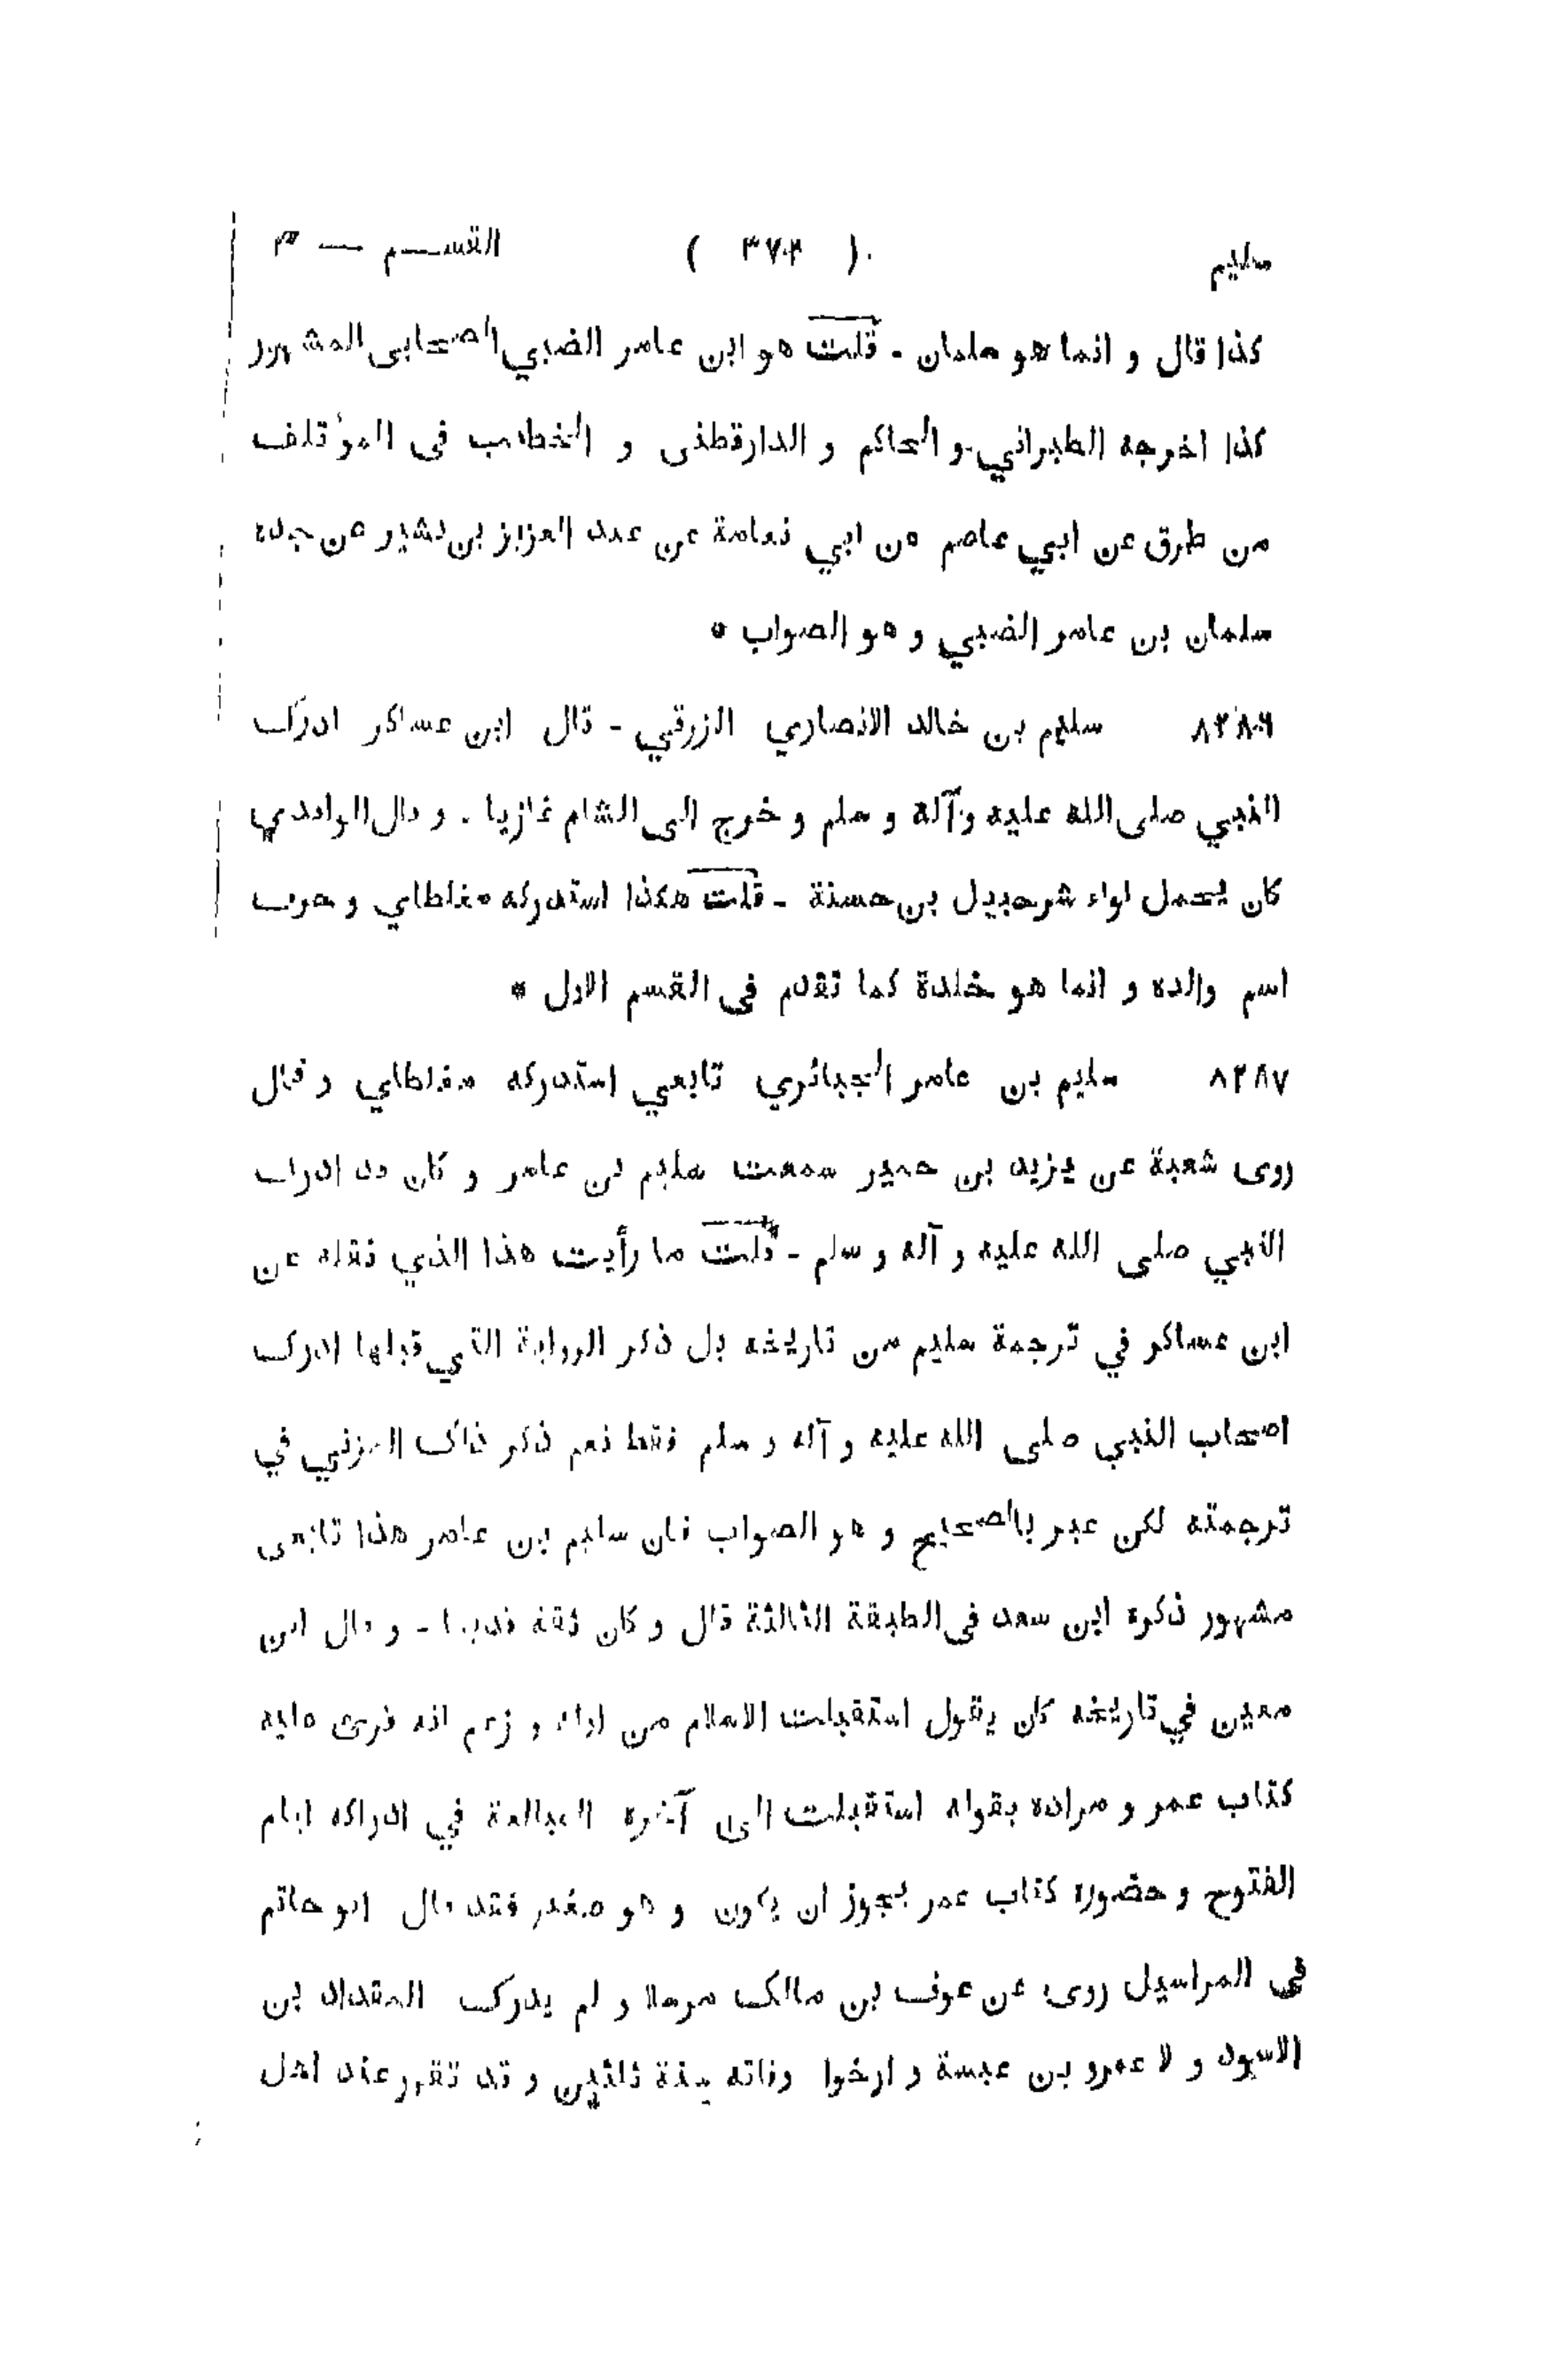 سليم ( ٣٧٤ ) القســـم — ٣
كذا قال و انما هو سلمان - قلت هو ابن عامر الضبي الصحابى المشهور
كذا اخرجه الطبراني و الحاكم و الدارقطنى و الخطيب فى المؤتلف
من طرق عن ابي عاصم عن ابي نعامة عن عبد العزيز بن بشير عن جده
سلمان بن عامر الضبي و هو الصواب *
٨٢٨٦ سليم بن خالد الانصاري الزرقي - قال ابن عساكر ادرك
النبي صلى الله عليه و آله و سلم و خرج الى الشام غازيا . و قال الواقدي
كان يحمل لواء شرحبيل بن حسنة - قلت هكذا استدركه مغلطاي و حرف
اسم والده و انما هو خلدة كما تقدم فى القسم الاول *
٨٢٨٧ سليم بن عامر الجبائري تابعي استدركه مغلطاي و قال
روى شعبة عن يزيد بن حمير سمعت سليم بن عامر و كان قد ادرك
النبي صلى الله عليه و آله و سلم - قلت ما رأيت هذا الذي نقله عن
ابن عساكر في ترجمة سليم من تاريخه بل ذكر الرواية التي قبلها ادرك
اصحاب النبي صلى الله عليه و آله و سلم فقط نعم ذكر ذاك المزني في
ترجمته لكن عبر بالصحيح و هو الصواب فان سليم بن عامر هذا تابعى
مشهور ذكره ابن سعد فى الطبقة الثالثة قال و كان ثقة قديما - و قال ابن
معين في تاريخه كان يقول استقبلت الاسلام من اوله و زعم انه قرئ عليه
كتاب عمر و مراده بقوله استقبلت الى آخره المبالغة في ادراكه ايام
الفتوح و حضوره كتاب عمر يجوز ان يكون و هو صغير فقد قال ابو حاتم
فى المراسيل روى عن عوف بن مالك مرسلا و لم يدرك المقداد بن
الاسود و لا عمرو بن عبسة و ارخوا وفاته سنة ثلثين و قد تقرر عند اهل